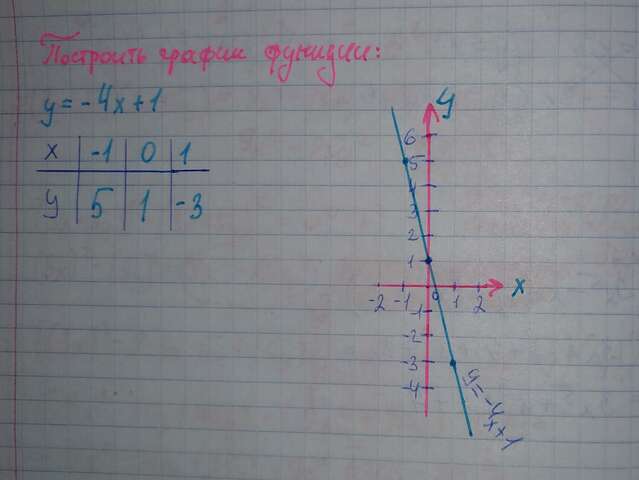 Построить график функции:
y = -4x+1
x -1 0 1
y 5 1 -3
y
6
5
4
3
2
1
-2 -1 0 1 2 x
-1
-2
-3
-4
y=-4x+1